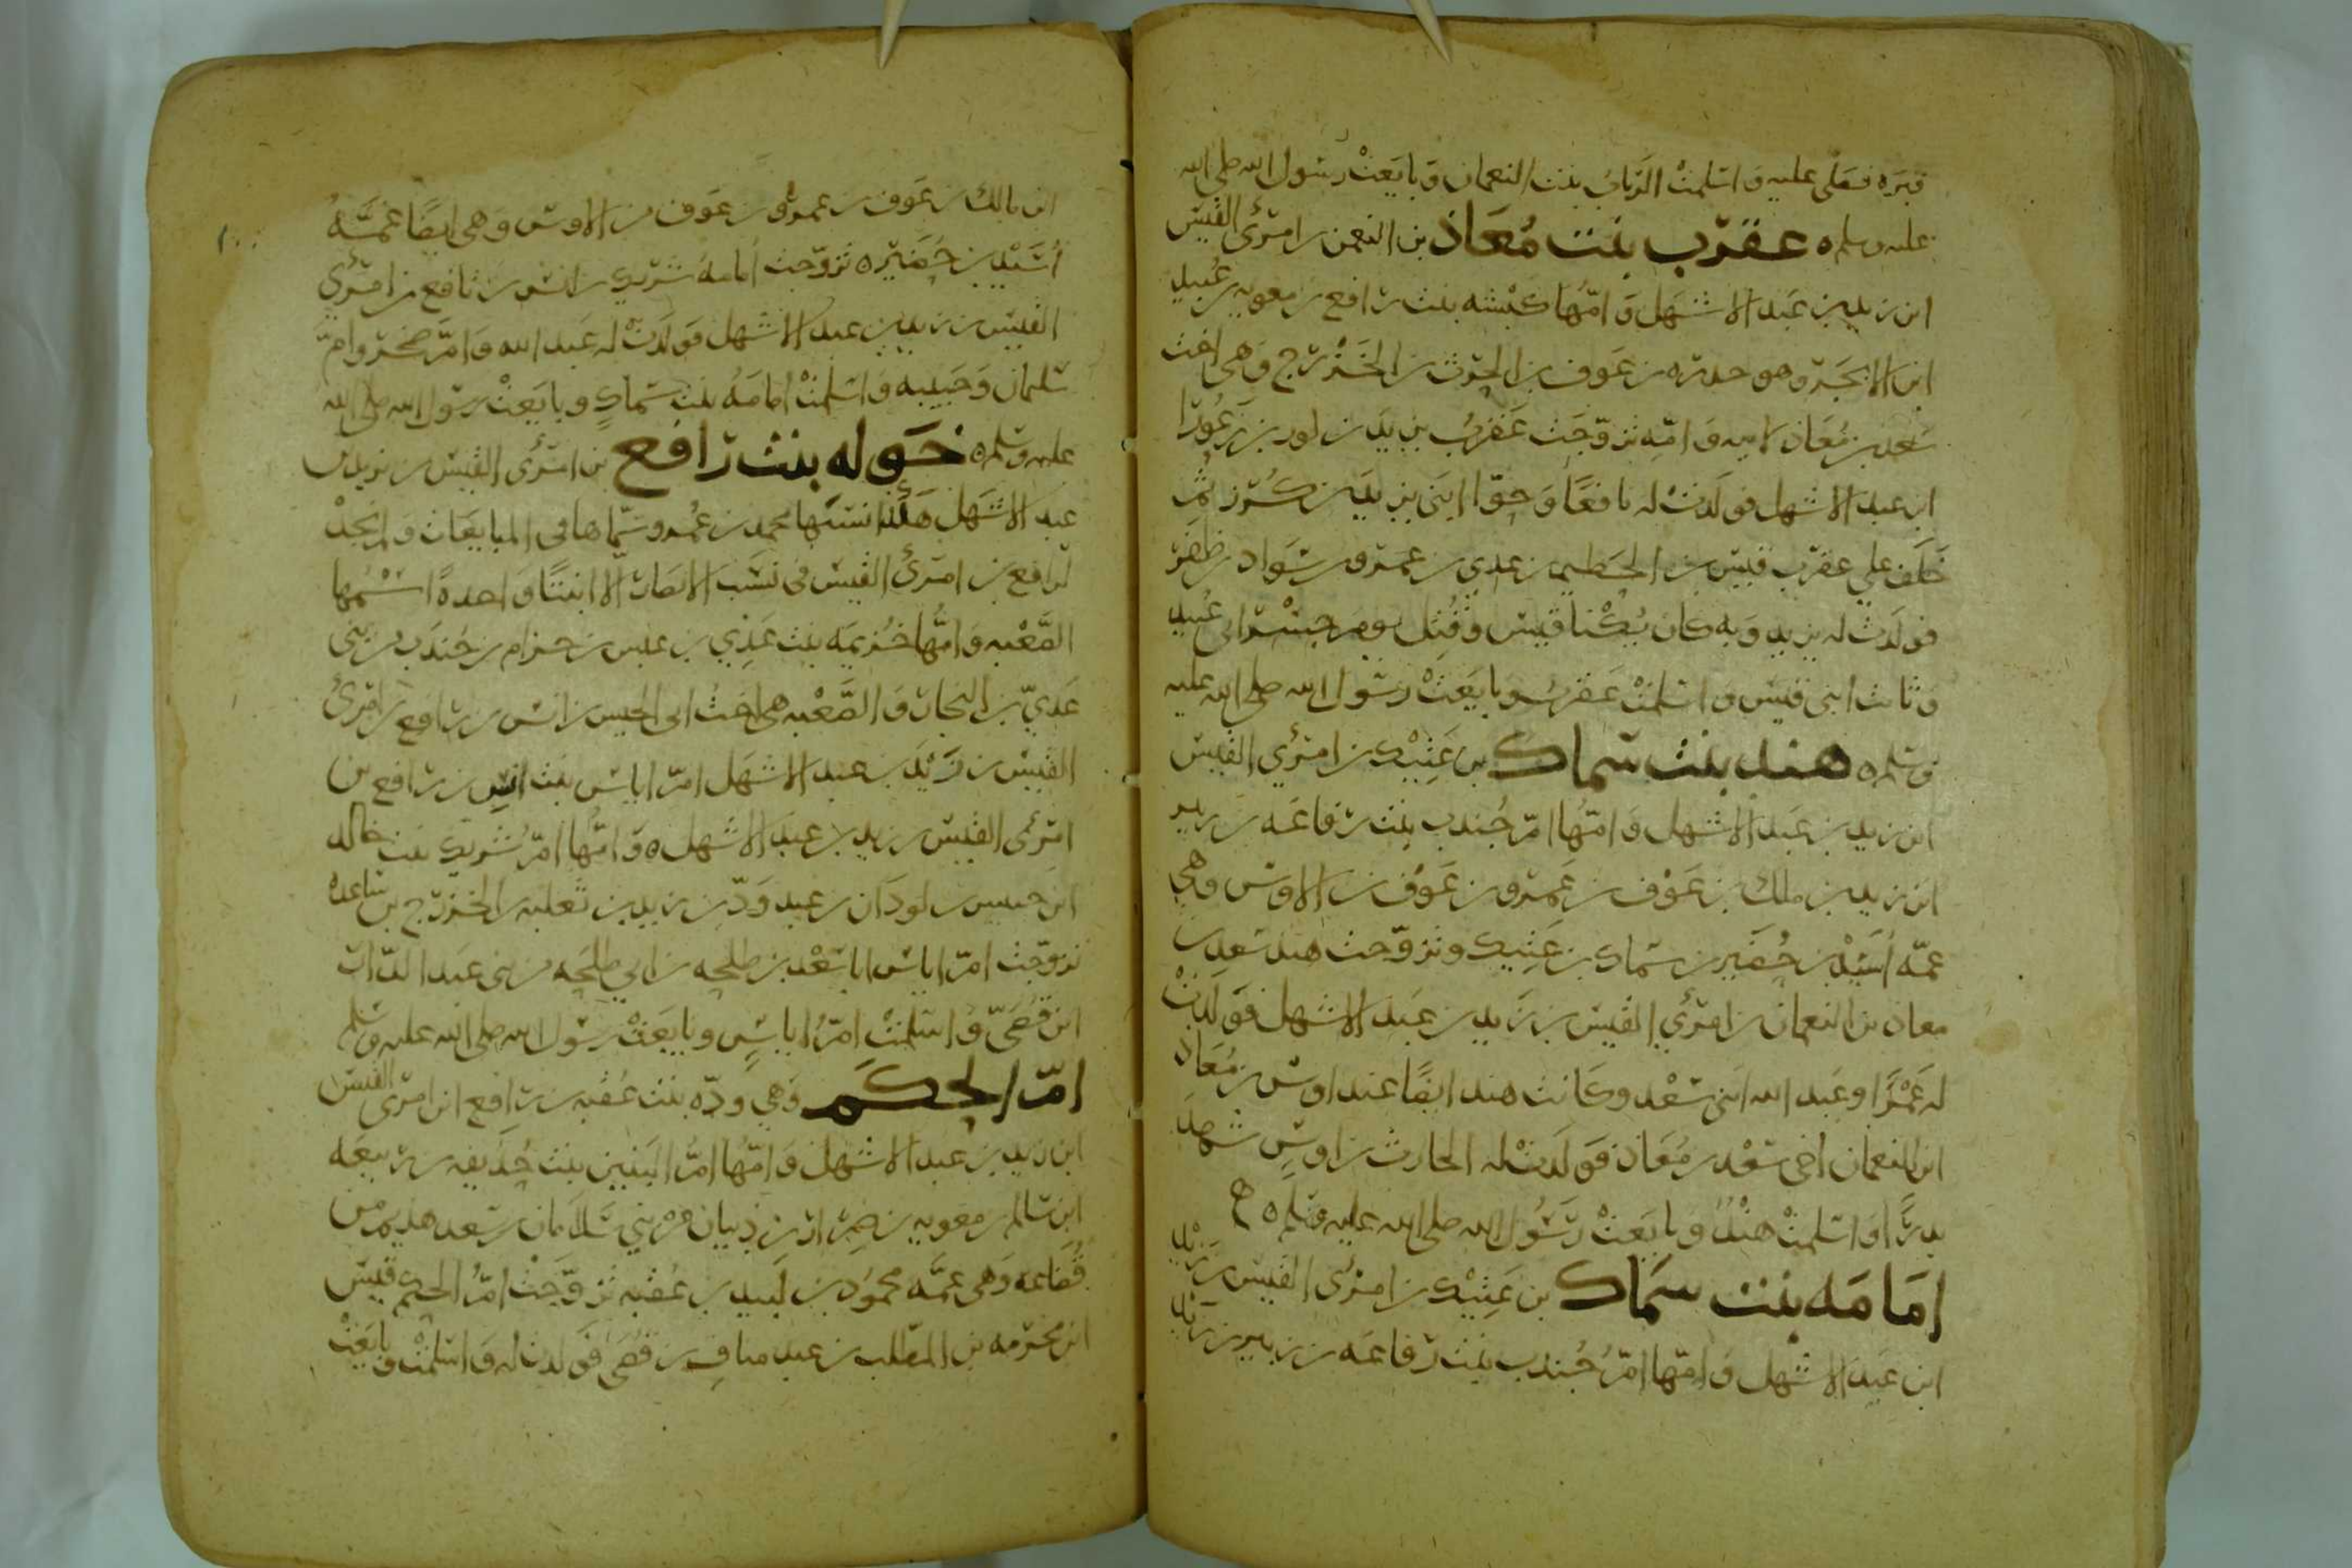 قبره فصلى عليه واسلمت الرباب بنت النعمان وبايعت رسول الله صلى الله
عليه وسلم ه عقرب بنت معاذ بن النعمن بن امرئ القيس
ابن زيد بن عبد الاشهل وامها كبشه بنت رافع بن معويه بن عبيد
ابن الابجر وهو خدره بن عوف بن الحرث بن الخزرج وهي اخت
سعد بن معاذ لابيه وامه تزوجت عقرب يزيد بن كرز بن زعورا
ابن عبد الاشهل فولدت له رافعا وحوا ابني يزيد بن كرز ثم
خلف على عقرب قيس بن الخطيم بن عدي بن عمرو بن سواد بن ظفر
فولدت له يزيد وبه كان يكنا قيس وقتل يوم جسر ابي عبيد
وثابت ابني قيس واسلمت عقرب وبايعت رسول الله صلى الله عليه
وسلم ه هند بنت سماك بن عتيك بن امرئ القيس
ابن زيد بن عبد الاشهل وامها ام جندب بنت رفاعه بن زنبر
ابن زيد بن ملك بن عوف بن عمرو بن عوف بن الاوس وهي
عمة اسيد بن حضير بن سماك بن عتيك وتزوجت هند سعد بن
معاذ بن النعمان بن امرئ القيس بن زيد بن عبد الاشهل فولدت
له عمرا وعبد الله ابني سعد وكانت هند ايضا عند اوس بن معاذ
ابن النعمان اخي سعد بن معاذ فولدت له الحارث بن اوس شهد
بدرا واسلمت هند وبايعت رسول الله صلى الله عليه وسلم ه
امامه بنت سماك بن عتيك بن امرئ القيس بن زيد
ابن عبد الاشهل وامها ام جندب بنت رفاعه بن زنبر بن زيد
ابن مالك بن عوف بن عمرو بن عوف من الاوس وهي ايضا عمه
اسيد بن حضير ه تزوجت امامه شريك بن انس بن رافع بن امرئ
القيس بن زيد بن عبد الاشهل فولدت له عبد الله وام صخر وام
سليمان وحبيبه واسلمت امامه بنت سماك وبايعت رسول الله صلى الله
عليه وسلم ه خوله بنت رافع بن امرئ القيس بن زيد بن
عبد الاشهل هكذا نسبها محمد بن عمر وسماها في المبايعات ولم نجد
لرافع بن امرئ القيس في نسب الانصار الا ابنتا واحدة اسمها
الصعبه وامها خزيمه بنت عدي بن عبس بن حرام بن جندب من بني
عدي بن النجار والصعبه هي اخت ابي الحيسر انس بن رافع بن امرئ
القيس بن زيد بن عبد الاشهل ام اياس بنت انس بن رافع بن
امرئ القيس بن زيد بن عبد الاشهل ه وامها ام شريك بنت خالد
ابن خنيس بن لوذان بن عبد ود بن زيد بن ثعلبه بن الخزرج بن ساعده
تزوجت ام اياس ابا سعد بن طلحه بن ابي طلحه من بني عبد الدار
ابن قصي واسلمت ام اياس وبايعت رسول الله صلى الله عليه وسلم
ام الحكم وهي ودّه بنت عقبه بن رافع ابن امرئ القيس
ابن زيد بن عبد الاشهل وامها ام البنين بنت حذيفه بن ربيعه
ابن سالم بن معويه بن ضرار بن ذبيان من بني سلامان بن سعد هذيم من
قضاعه وهي عمه محمود بن لبيد بن عقبه تزوجت ام الحكم قيس
ابن مخرمه بن المطلب بن عبد مناف بن قصي فولدت له واسلمت وبايعت